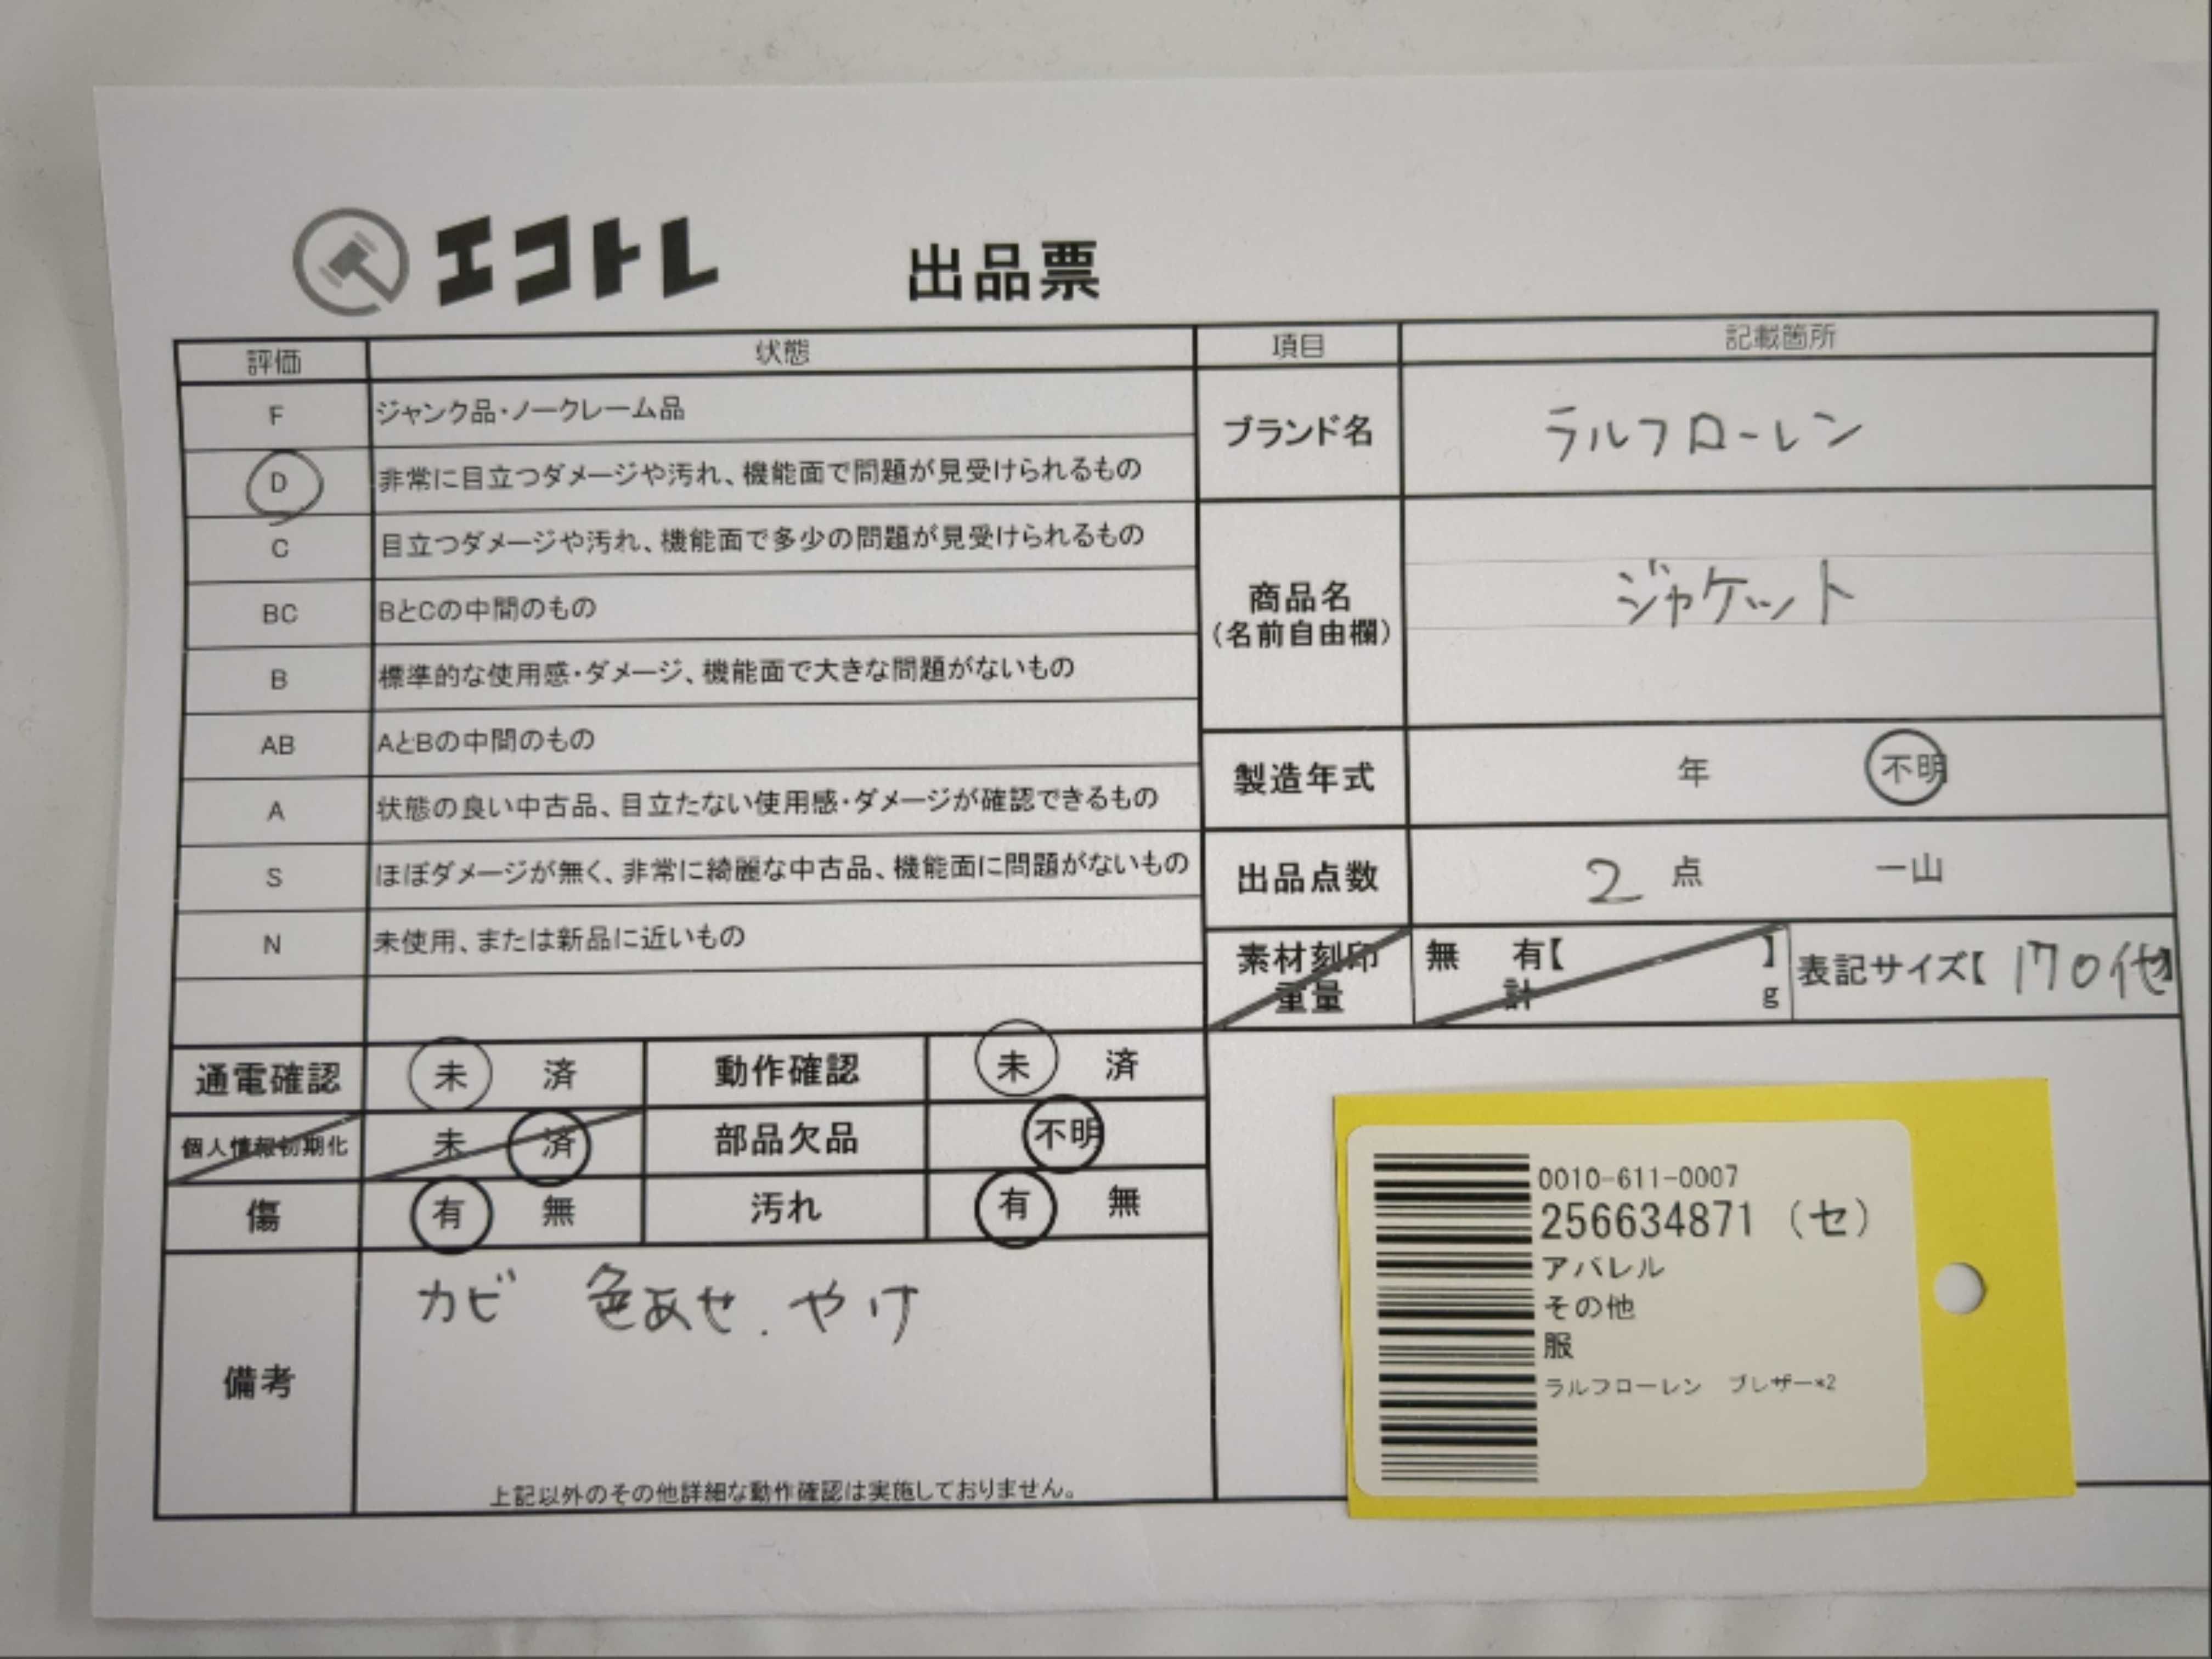 エコトレ 出品票
評価 状態 項目 記載箇所
F ジャンク品・ノークレーム品
D 非常に目立つダメージや汚れ、機能面で問題が見受けられるもの
C 目立つダメージや汚れ、機能面で多少の問題が見受けられるもの
BC BとCの中間のもの
B 標準的な使用感・ダメージ、機能面で大きな問題がないもの
AB AとBの中間のもの
A 状態の良い中古品、目立たない使用感・ダメージが確認できるもの
S ほぼダメージが無く、非常に綺麗な中古品、機能面に問題がないもの
N 未使用、または新品に近いもの
ブランド名 ラルフローレン
商品名 ジャケット
(名前自由欄)
製造年式 年 不明
出品点数 2 点 一山
素材刻印 無 有【 】 表記サイズ【 170他】
重量 計 g
通電確認 未 済 動作確認 未 済
個人情報初期化 未 済 部品欠品 不明
傷 有 無 汚れ 有 無
備考 カビ 色あせ.やけ
上記以外のその他詳細な動作確認は実施しておりません。
0010-611-0007
256634871 (セ)
アパレル
その他
服
ラルフローレン ブレザー*2